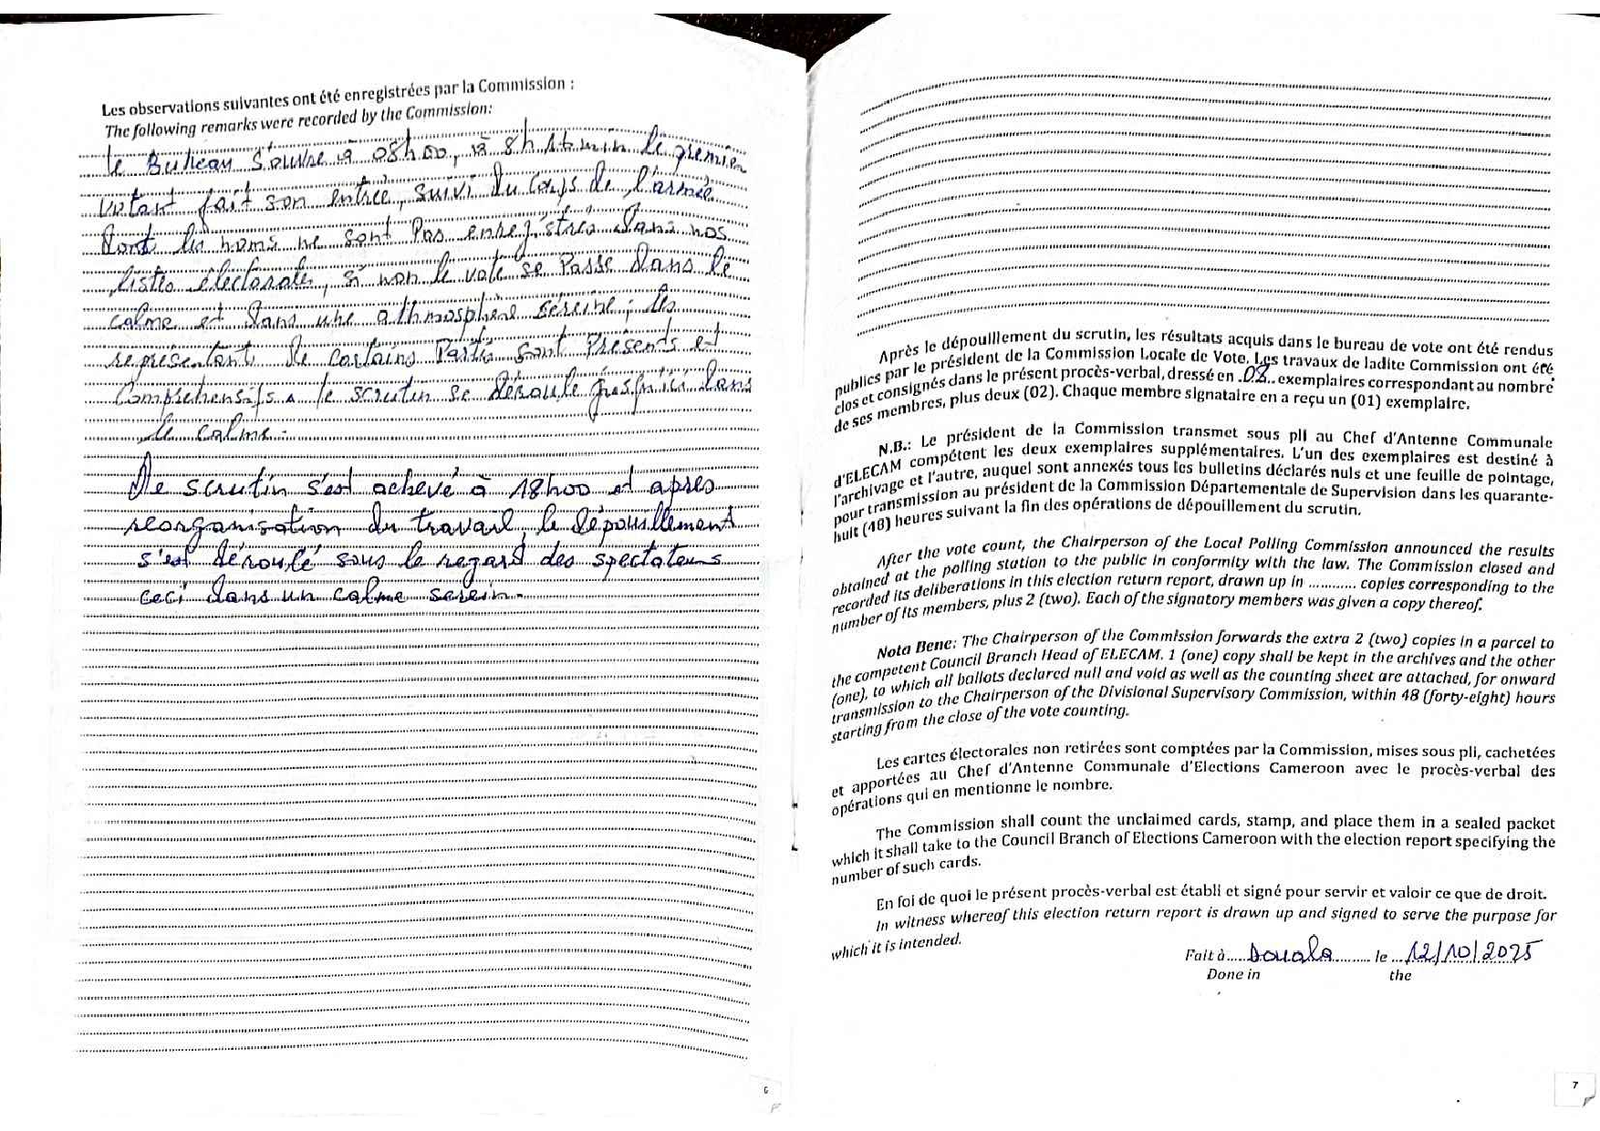 Les observations suivantes ont été enregistrées par la Commission :
The following remarks were recorded by the Commission:
le Bureau s'ouvre à 08h00, à 8h 16min le premier
votant fait son entrée, suivi du corps de l'armée
dont les noms ne sont Pas enregistrés dans nos
listes électorales, si non le vote se Passe dans le
calme et dans une athmosphère sereine ; les
représentant de certains Partis sont Présents et
Compréhensifs. le scrutin se déroule jusqu'ici dans
le calme.
Le scrutin s'est achevé à 18h00 et après
reorganisation du travail, le dépouillement
s'est déroulé sous le regard des spectateurs
ceci dans un calme serein.
6
Après le dépouillement du scrutin, les résultats acquis dans le bureau de vote ont été rendus
publics par le président de la Commission Locale de Vote. Les travaux de ladite Commission ont été
clos et consignés dans le présent procès-verbal, dressé en .08.. exemplaires correspondant au nombre
de ses membres, plus deux (02). Chaque membre signataire en a reçu un (01) exemplaire.
N.B.: Le président de la Commission transmet sous pli au Chef d'Antenne Communale
d'ELECAM compétent les deux exemplaires supplémentaires. L'un des exemplaires est destiné à
l'archivage et l'autre, auquel sont annexés tous les bulletins déclarés nuls et une feuille de pointage,
pour transmission au président de la Commission Départementale de Supervision dans les quarante-
huit (48) heures suivant la fin des opérations de dépouillement du scrutin.
After the vote count, the Chairperson of the Local Polling Commission announced the results
obtained at the polling station to the public in conformity with the law. The Commission closed and
recorded its deliberations in this election return report, drawn up in ............ copies corresponding to the
number of its members, plus 2 (two). Each of the signatory members was given a copy thereof.
Nota Bene: The Chairperson of the Commission forwards the extra 2 (two) copies in a parcel to
the competent Council Branch Head of ELECAM. 1 (one) copy shall be kept in the archives and the other
(one), to which all ballots declared null and void as well as the counting sheet are attached, for onward
transmission to the Chairperson of the Divisional Supervisory Commission, within 48 (forty-eight) hours
starting from the close of the vote counting.
Les cartes électorales non retirées sont comptées par la Commission, mises sous pli, cachetées
et apportées au Chef d'Antenne Communale d'Elections Cameroon avec le procès-verbal des
opérations qui en mentionne le nombre.
The Commission shall count the unclaimed cards, stamp, and place them in a sealed packet
which it shall take to the Council Branch of Elections Cameroon with the election report specifying the
number of such cards.
En foi de quoi le présent procès-verbal est établi et signé pour servir et valoir ce que de droit.
In witness whereof this election return report is drawn up and signed to serve the purpose for
which it is intended.
Fait à..... Douala .......... le ... 12/10/2025
Done in the
7